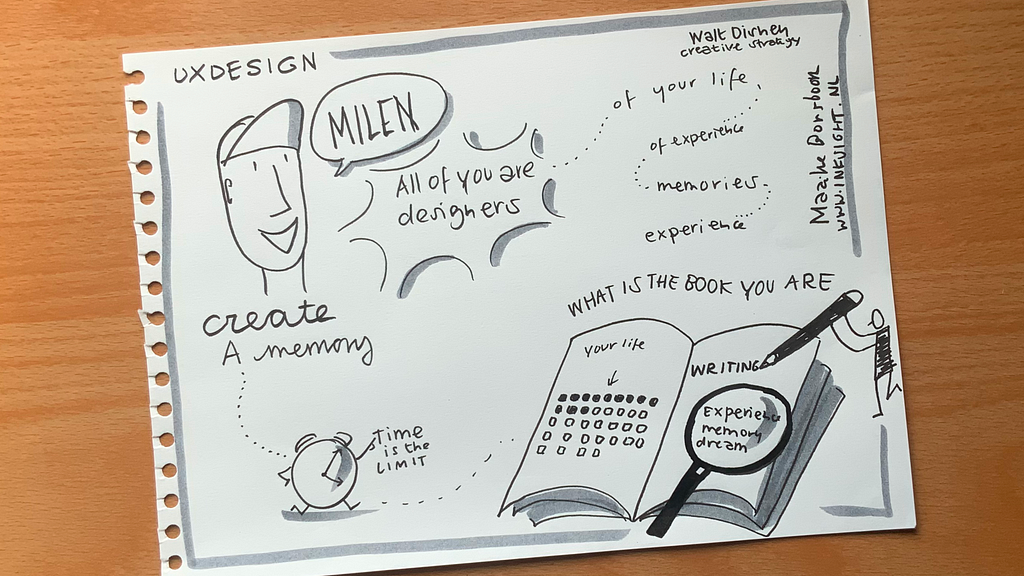 UXDESIGN
MILEN
All of you are
designers
Walt Disney
creative strategy
of your life
of experience
memories
experience
Maaike
WWW.INKSIGHT.NL
create
A memory
Time
is the
LIMIT
WHAT IS THE BOOK YOU ARE
WRITING
your life
Experience
memory
dream